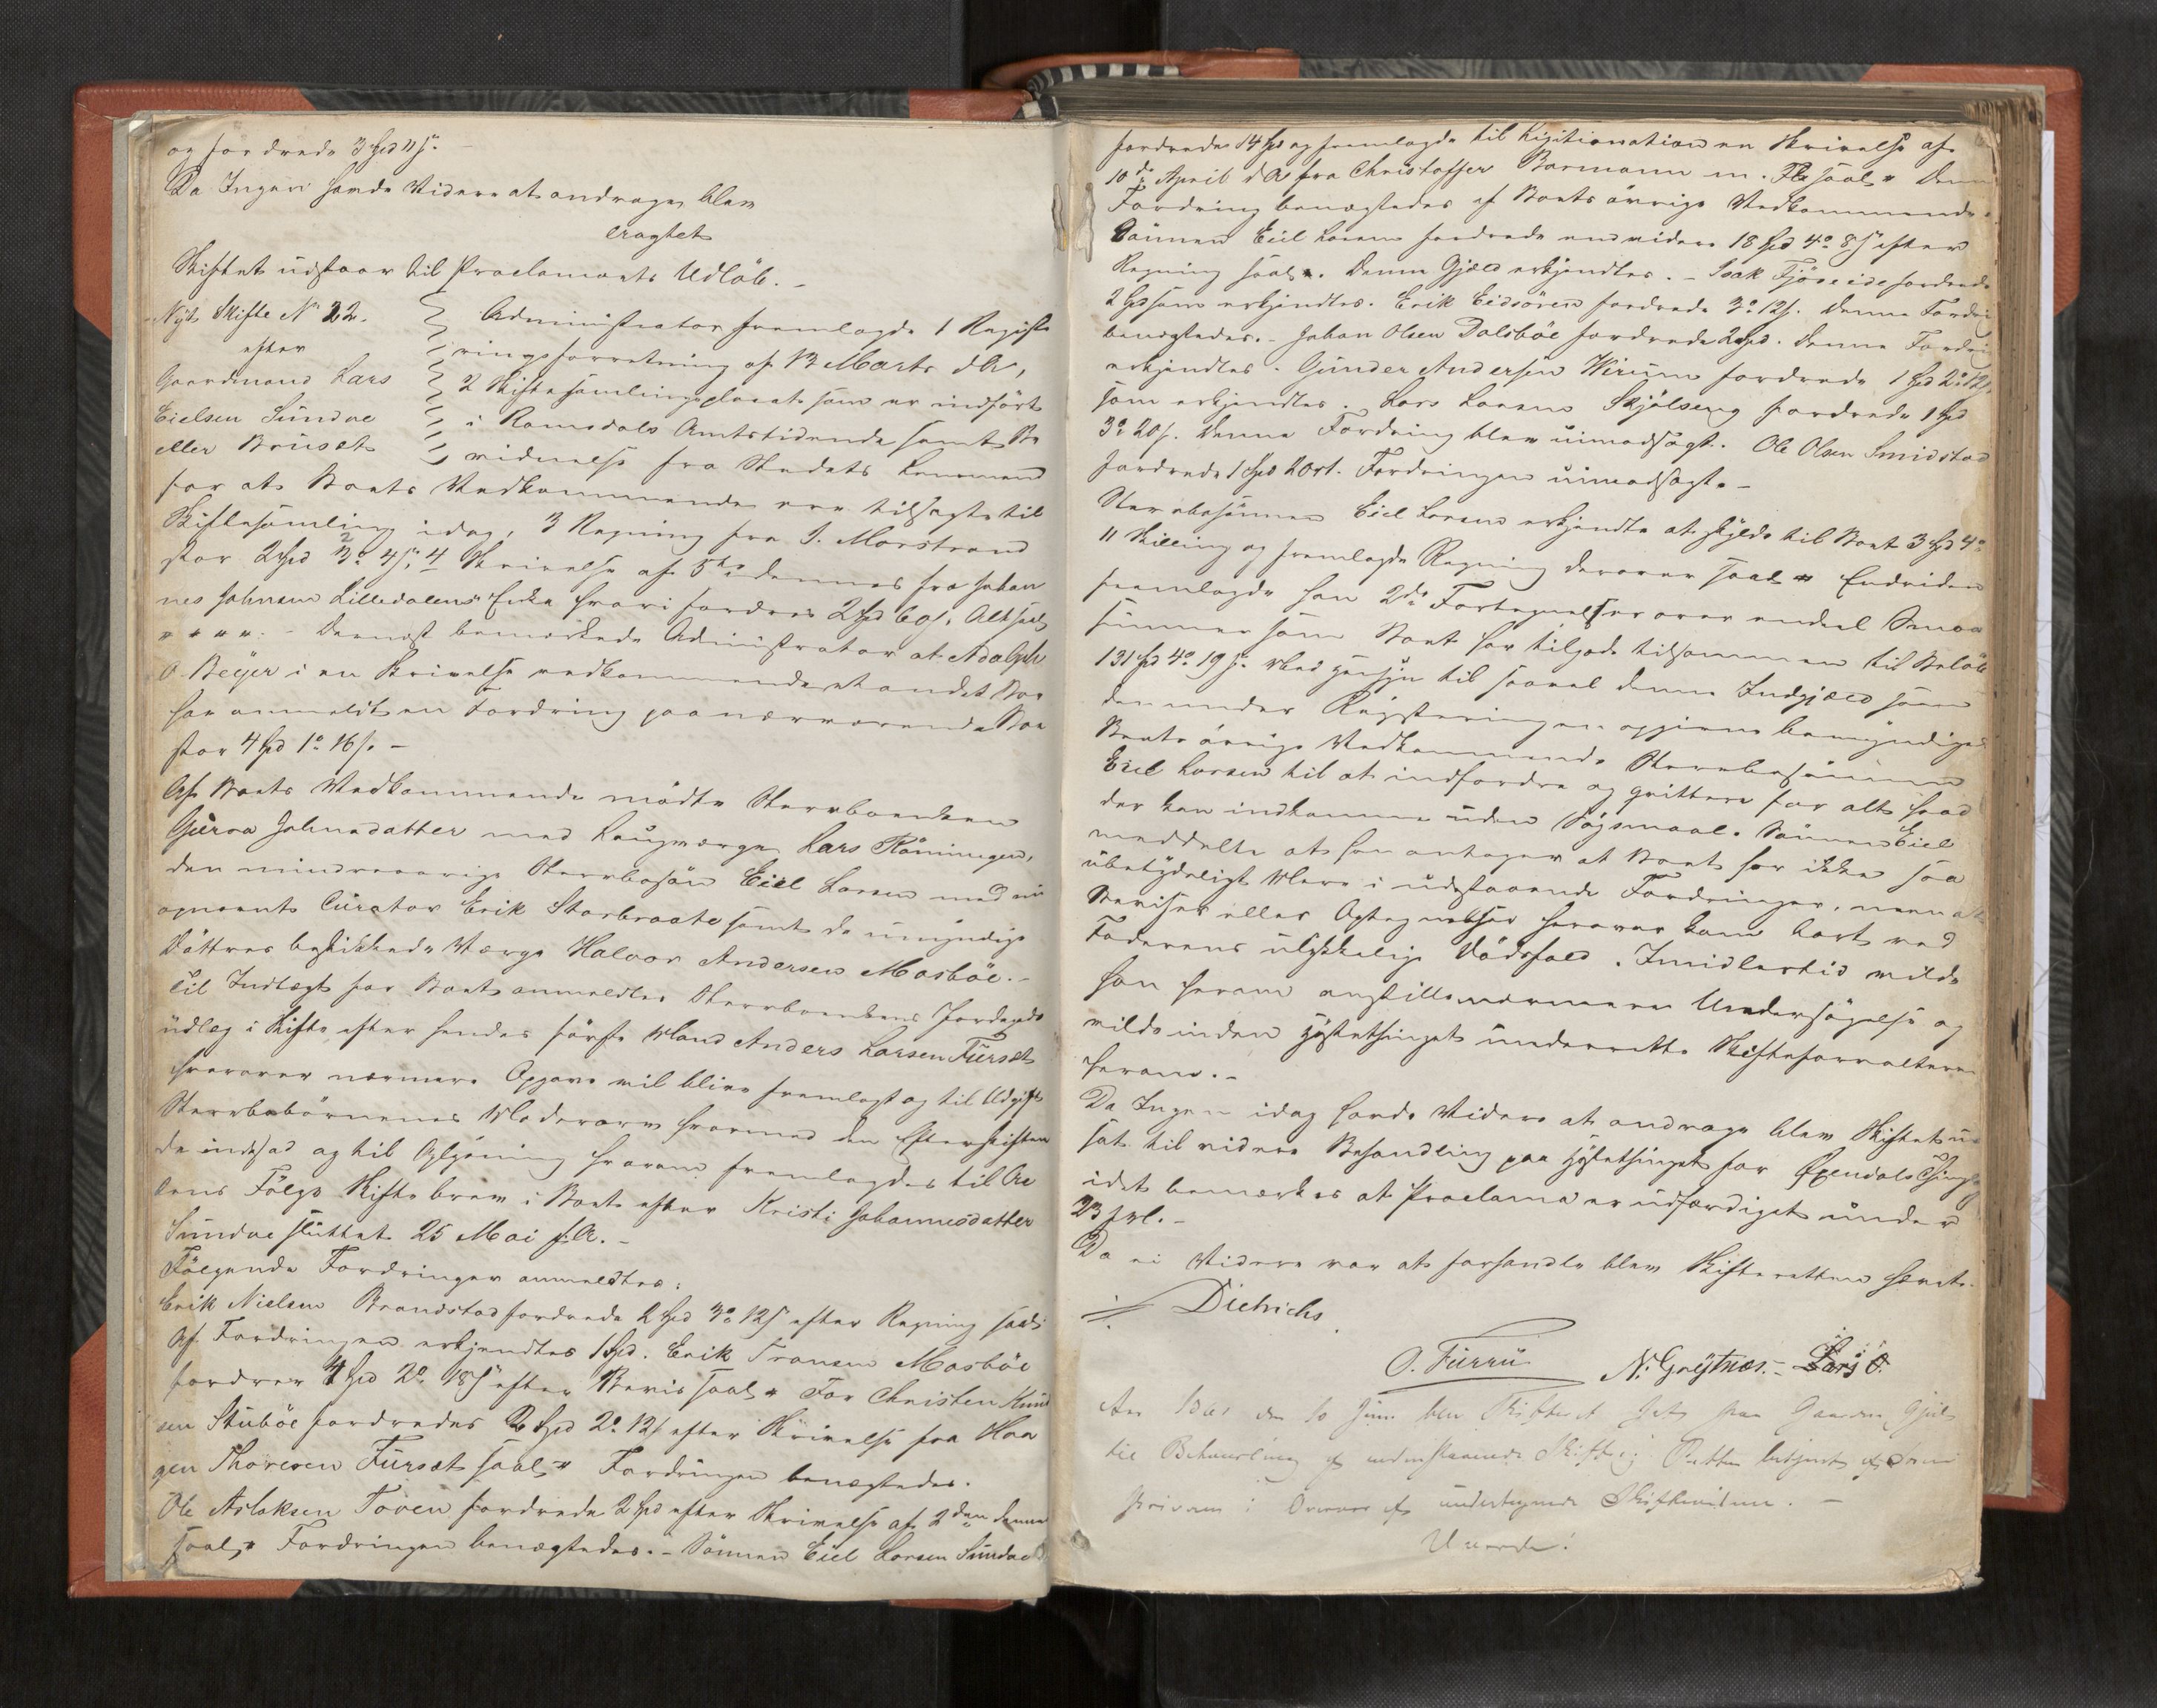 og fordrede 3 Spd 11 s.
Da Ingen havde Videre at andrage blev
eragtet
Skiftet udstaar til Proclamaets Udløb. –
Nyt Skifte No 22.
efter
Gaardmand Lars
Eielsen Sundae
eller Bruset
Administrator fremlagde 1 Registe
ringsforretning af 13 Marts d.A.,
2 Skiftesamlingsplacat som er indført
i Romsdals Amtstidende samt Be
vidnelse fra Stedets Lensmand
for at Boets Vedkommende ere tilsagte til
Skiftesamling idag, 3 Regning fra J. Morstrand
stor 2 Spd 2o 4 s, 4 Skrivelse af 5te dennes fra Johan
nes Johnsen Lilledalens Enke hvori fordres 2 Spd 60 s. Alt saal.
" " " ". – Dernæst bemærkede Administrator at Adolph
O. Beyer i en Skrivelse vedkommende et andet Boe
har anmeldt en Fordring paa nærværende Boe
stor 4 Spd 1o 16 s. –
Af Boets Vedkommende mødte Stervboenken
Guroa Johnsdatter med Laugværge Lars Röningen,
den mindreaarige Stervbosøn Eiel Larsen med sin
opnævnte Curator Erik Storbraate samt de umyndige
Döttres beskikkede Værge Halvor Andersen Mosböe. –
Til Indtægt for Boet anmeldtes Stervboenkens Jordegods
udlæg i Skifte efter hendes første Mand Anders Larsen Furset
hvorover nærmere Opgave vil blive fremlagt og til Udgift
Stervbobørnenes Mødrearv hvormed den Efterskiften
de indsad og til Oplysning hvorom fremlagdes til Ac
tens Følge Skiftebrev i Boet efter Kristi Johannesdatter
Sundae sluttet 25 Mai f.A. –
Følgende Fordringer anmeldtes:
Erik Nielsen Brandstad fordrede 2 Spd 3o 12 s efter Regning saal.
Af Fordringen erkjendtes 1 Spd. Erik Transen Mosböe
fordrer 4 Spd 2o 18 s efter Bevis saal. " For Christen Knud
sen Stuböe fordredes 2 Spd 2o 12 s efter Skrivelse fra Haa
gen Thoresen Furset saal. " Fordringen benægtedes.
Ole Aslaksen Toven fordrede 2 Spd efter Skrivelse af 2den dennes
saal. " Fordringen benægtedes. – Sønnen Eiel Larsen Sundae
fordrede 14 Spd og fremlagde til Ligitimation en Skrivelse af
10de April d.A. fra Christoffer Bormann m. Fl. saal. " Denne
Fordring benægtedes af Boets øvrige Vedkommende.
Sønnen Eiel Larsen fordrede endvidere 18 Spd 4o 8 s efter
Regning saal. ". Denne Gjæld erkjendtes. – Isak Fjöseide fordrede
2 Spd som erkjendtes. Erik Eidsören fordrede 3o 12 s. Denne Fordring
benægtedes. – Johan Olsen Dalsböe fordrede 2 Spd. Denne Fordring
erkjendtes. Gunder Andersen Wirum fordrede 1 Spd 2o 12 s.
som erkjendtes. Lars Larsen Skjölseng fordrede 1 Spd
3o 20 s. Denne Fordring blev uimodsagt. Ole Olsen Smidstad
fordrede 1 Spd 2 Ort. Fordringen uimodsagt. –
Stervbosønnen Eiel Larsen erkjendte at skylde til Boet 3 Spd 4o
11 Skilling og fremlagde Regning derover saal. " Endvidere
fremlagde han 2de Fortegnelser over endeel Smaa
summer som Boet har tilgode tilsammen til Beløb
131 Spd 4o 19 s. Med Hensyn til saavel denne Indgjæld som
den under Registeringen opgivne bemyndiges
Boets øvrige Vedkommende Stervbosønnen
Eiel Larsen til at indfordre og qvittere for alt hvad
der kan indkomme uden Søgsmaal. Sønnen Eiel
meddelte at han antager at Boet har ikke saa
ubetydeligt Mere i udestaaende Fordringer, men at
Beviser eller Optegnelser herover kom bort ved
Faderens ulykkelige Dødsfald. Imidlertid vilde
han herom anstille nærmere Undersøgelse og
vilde inden Høstethinget underrette Skifteforvalteren
herom. –
Da Ingen idag havde Videre at andrage blev Skiftet ud
sat til videre Behandling paa Høstethinget for Øxendals Thinglag
idet bemærkes at Proclama er udfærdiget under
23 f.M. –
Da ei Videre var at forhandle blev Skifteretten hævet.
Dietrichs
O. Furru N. Grøtnæs. – Lars O.
Aar 1861 den 10 Juni blev Skifteret sat paa Gaarden Gjul
til Behandling af nedenstaaende Skifte; Retten betjent af Soren
skriveren i Overvær af undertegnede Skiftevidner. –